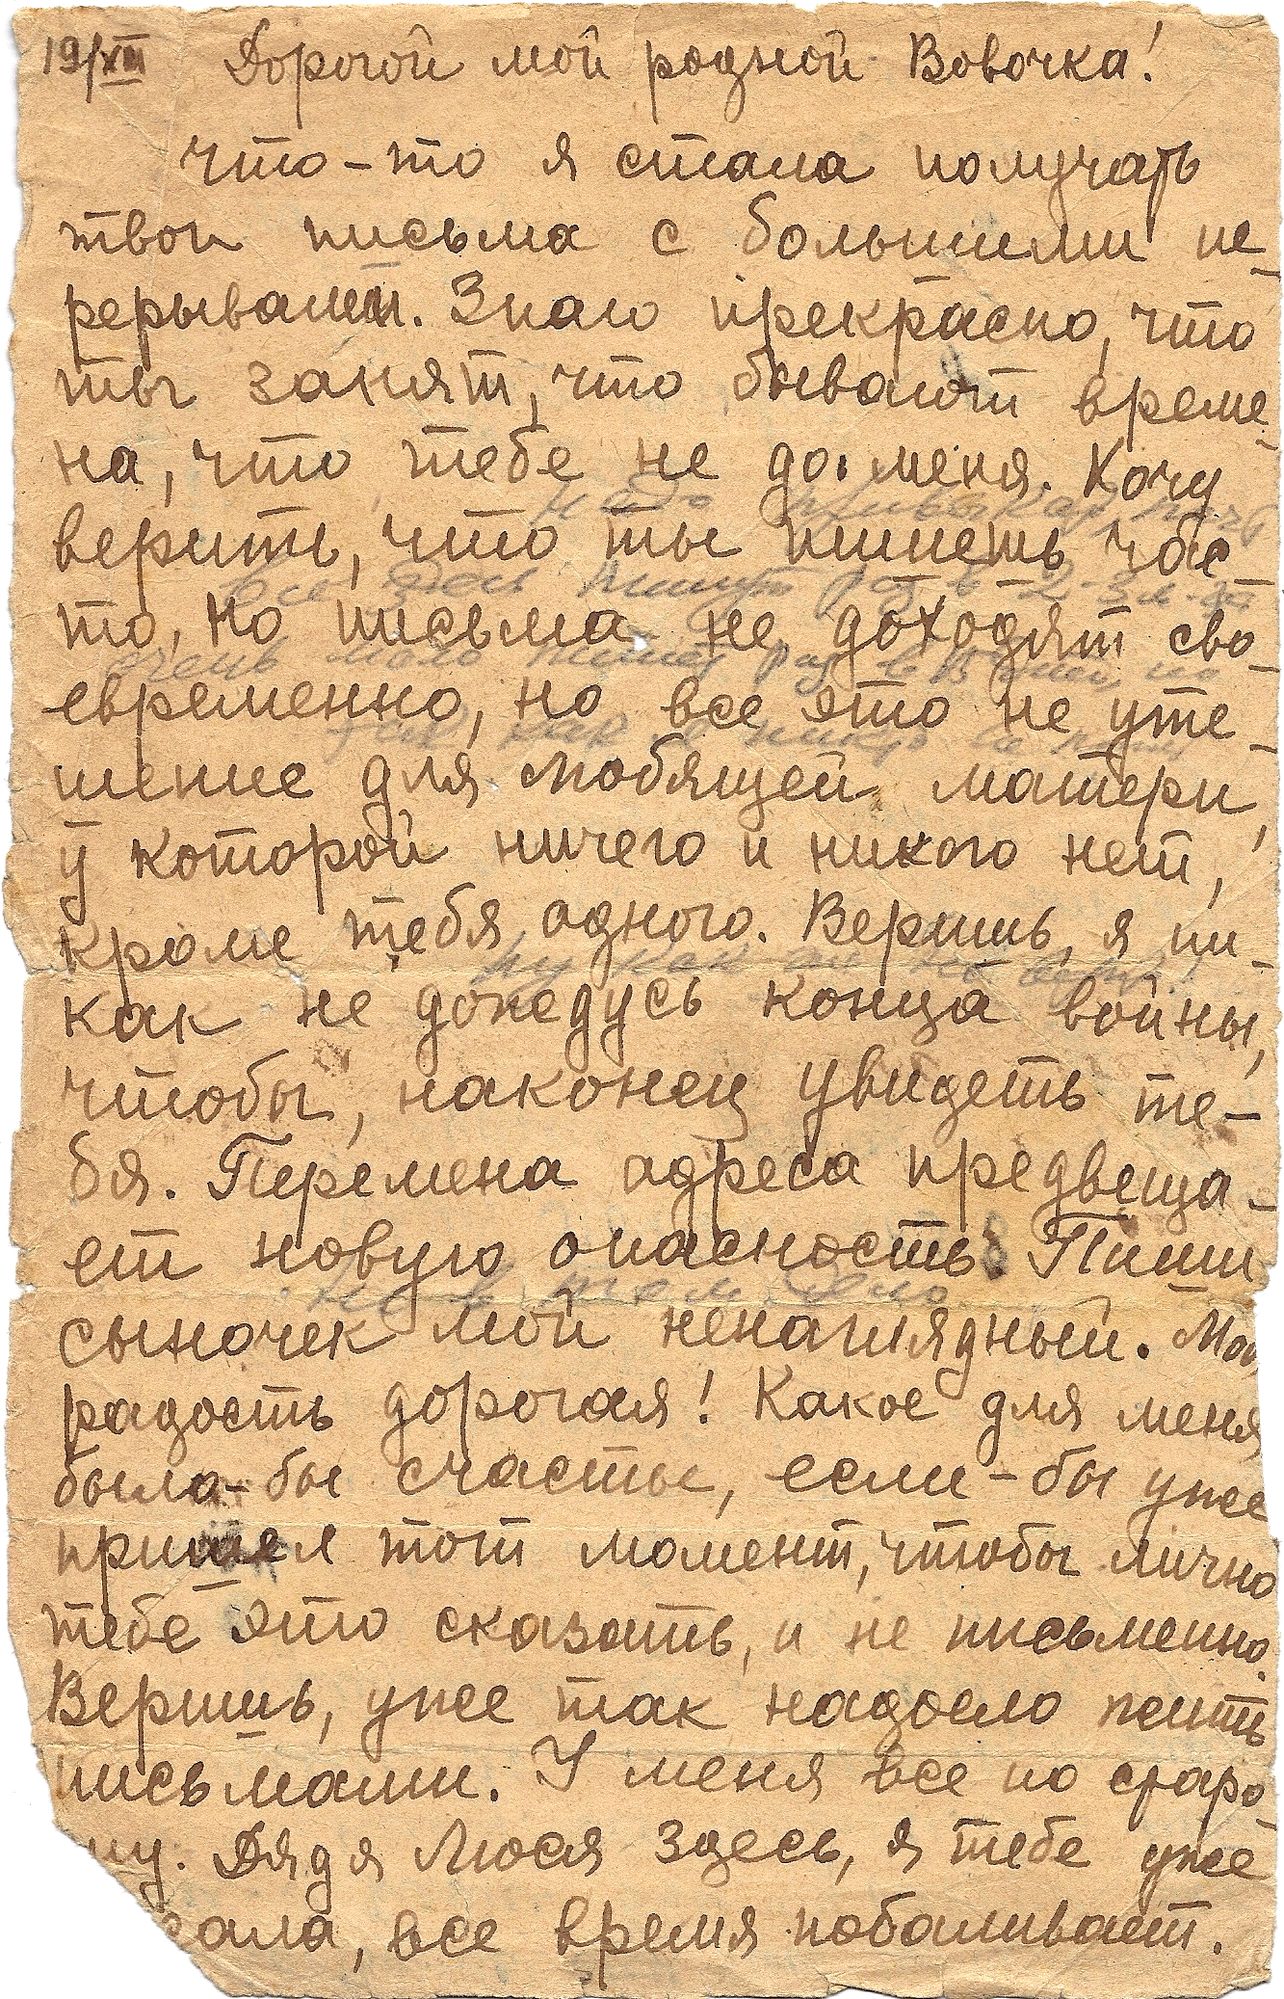 19/XII Дорогой мой родной Вовочка!
Что-то я стала получать
твои письма с большими пе-
рерывами. Знаю прекрасно, что
ты занят, что бывают време-
на, что тебе не до меня. Хочу
надо привыкать,
верить, что ты пишешь час-
все здесь пишут раз в 2-3 м-ца
то, но письма не доходят сво-
очень мало пишут раз в
евременно, но все это не уте-
так как я никому не пишу
шение для любящей матери,
у которой ничего и никого нет,
кроме тебя одного. Веришь, я ни-
ну как же не верить!
как не дождусь конца войны,
чтобы, наконец увидеть те-
бя. Перемена адреса предвеща-
ет новую опасность. Пиши
не в том дело
сыночек мой ненаглядный. Моя
радость дорогая! Какое для меня
было-бы счастье, если-бы уже
пришел тот момент, чтобы лично
тебе это сказать, и не письменно.
Веришь, уже так надоело жить
письмами. У меня все по старо
му. Дядя Люся здесь, я тебе уже
сала, все время побаливает.